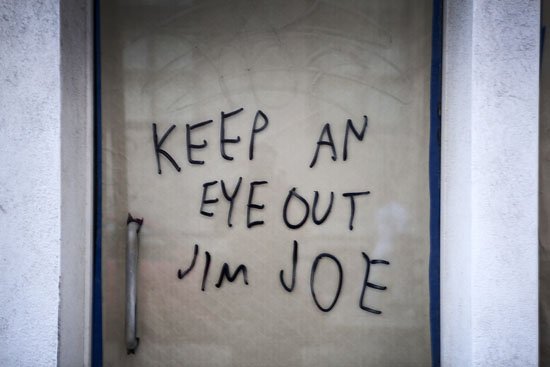 KEEP AN
EYE OUT
JIM JOE